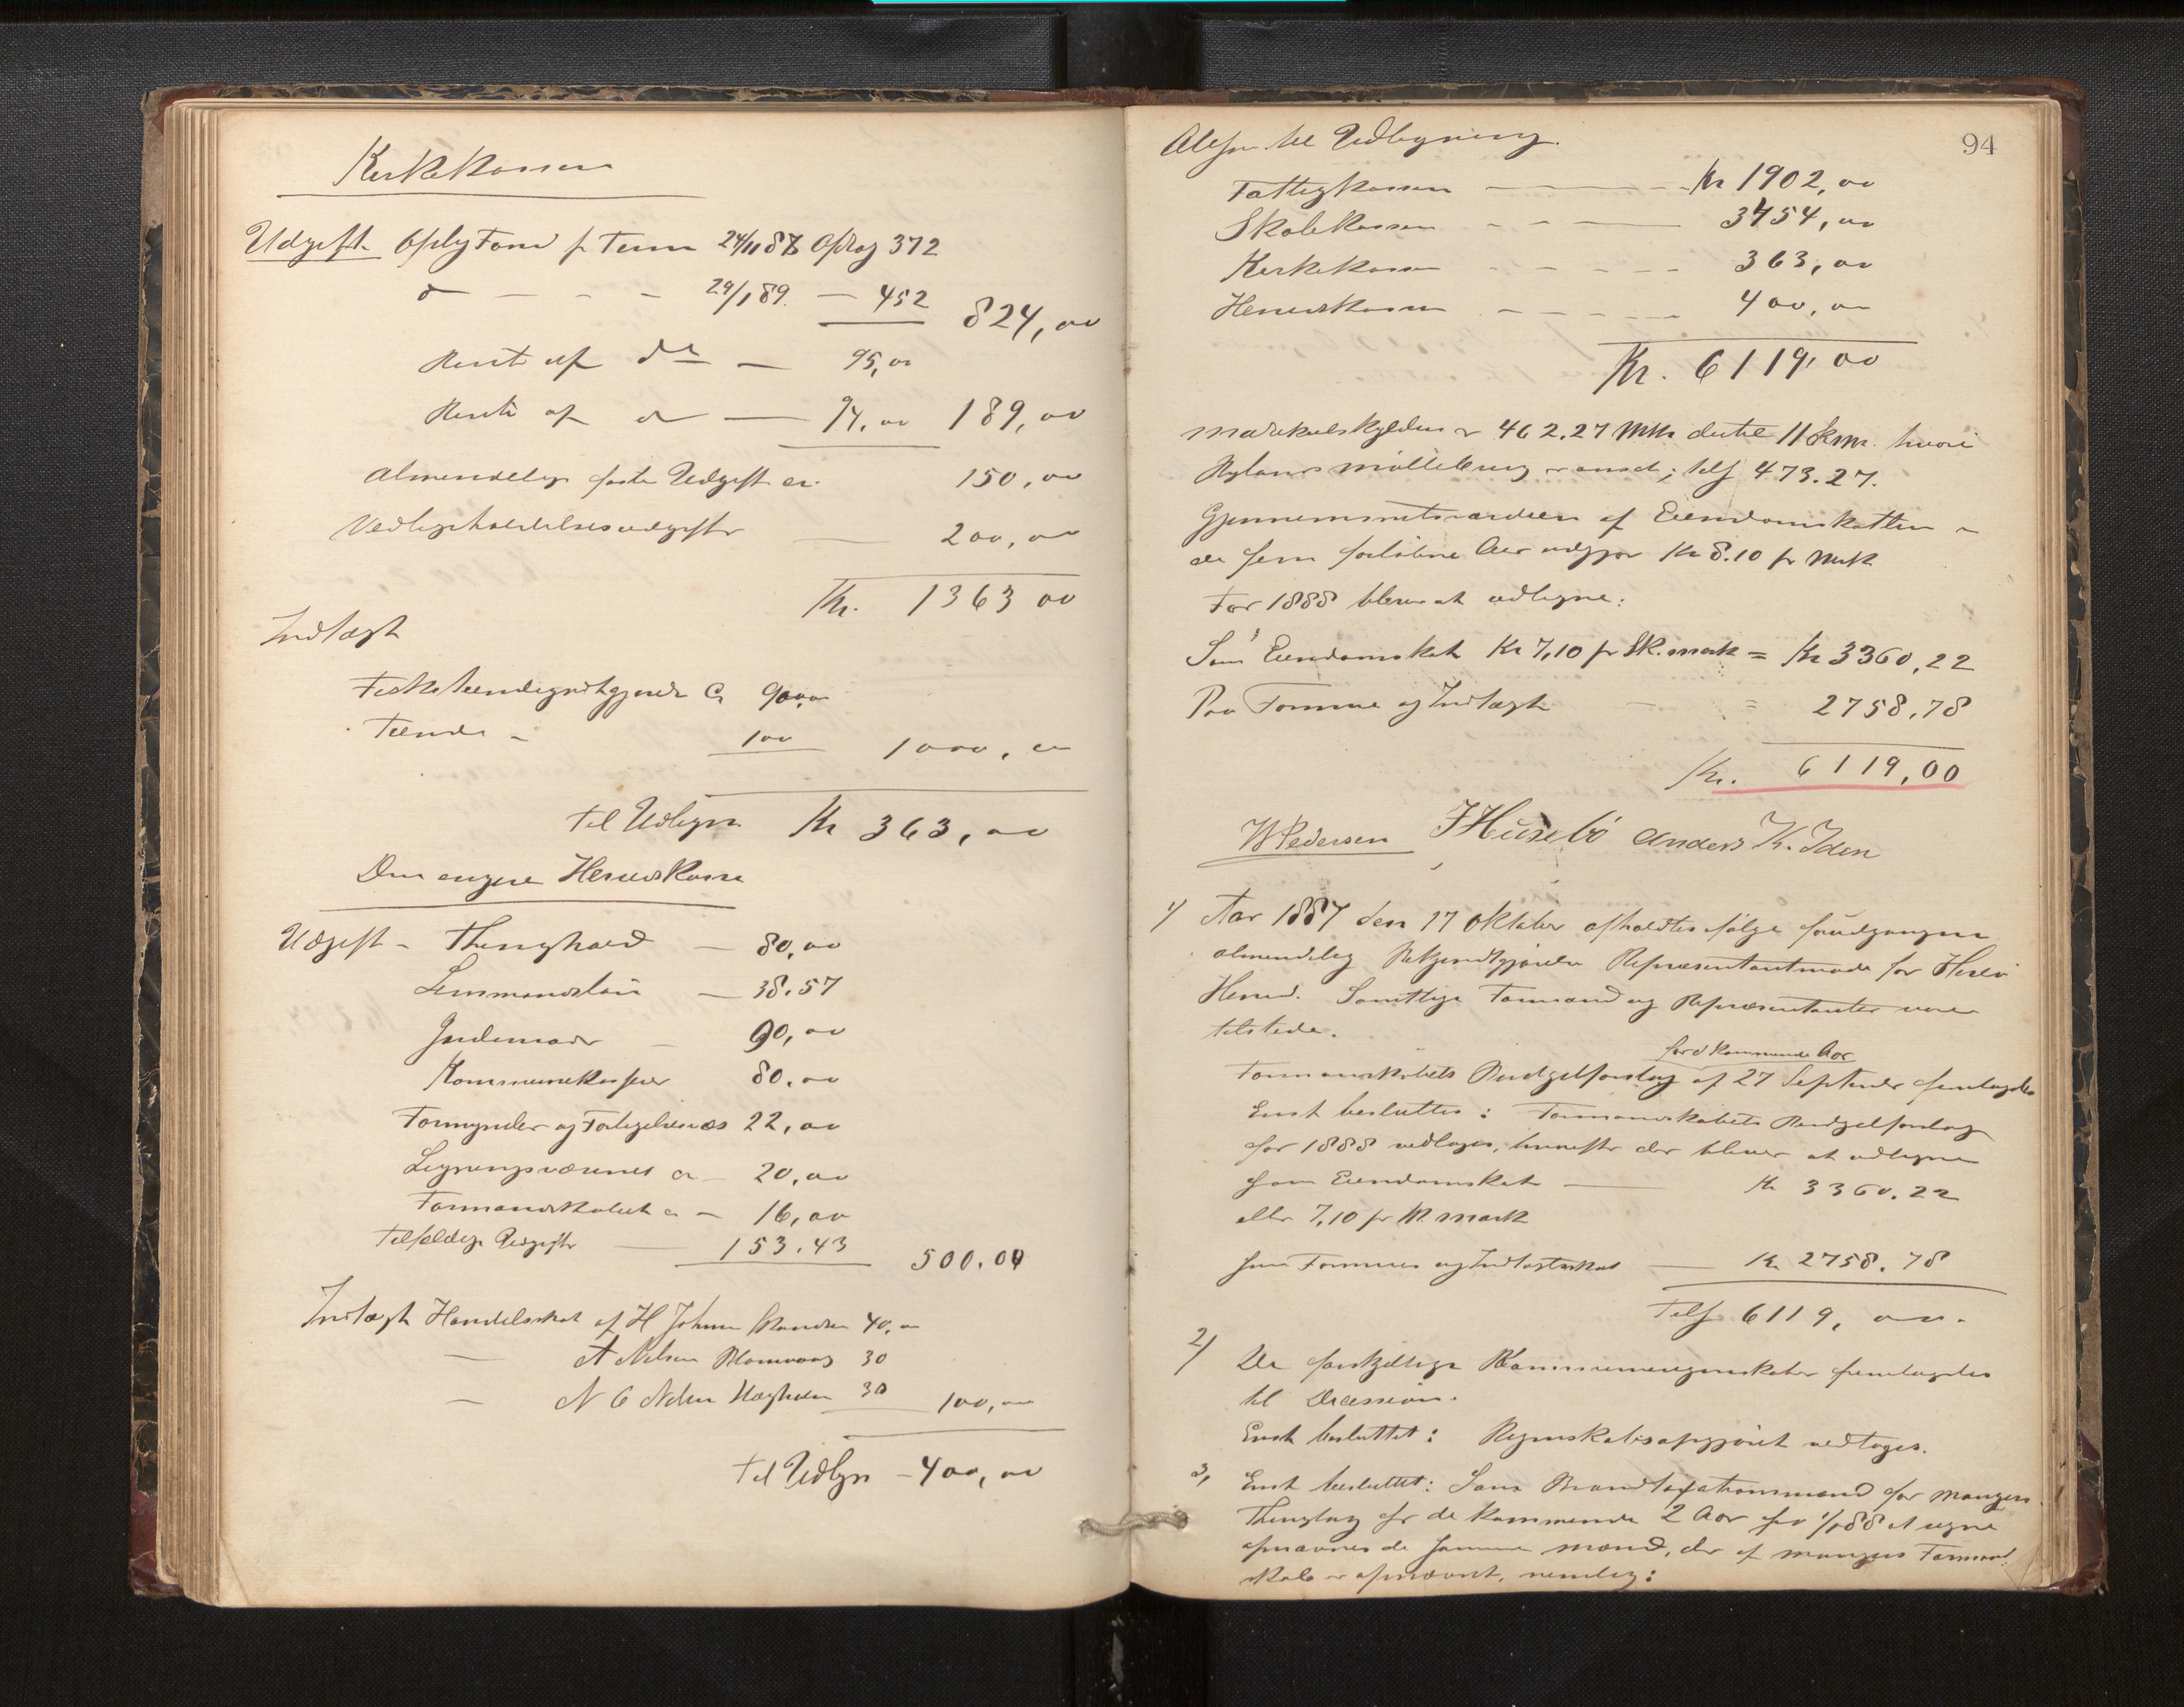 Kirkekassen
Udgift Oplys Fond pr Term 24/11 87 Afdrag 372
d — — — 29/1 89. — 452 824,00
Rente af do — 95,00
Rente af d — 94,00 189,00
Almindelige faste Udgifter ca. 150,00
Vedligeholdelsesudgifter — 200,00
Kr. 1363 00
Indtægt
Fisketiendegodtgjørelse Ca 900,00
Tiende — 100 1000,00
til Udlign Kr 363,00
Den engere Heredskasse
Udgift — Thinghold — 80,00
Lensmandsløn — 38.57
Jordemoder — 90,00
Kommunekasserer 80.00
Formynder og Forligelsesvæs 22,00
Ligningsvæsenet ca — 20,00
Formandskabet ca — 16,00
Tilfældige Udgifter — 153.43 500.00
Indtægt Handelsskat af H Johnsen 40,00
— A Nilsen Blomvaag 30
— N O Nilsen 30 100,00
til Udlign — 400,00
94
Altsaa til Udligning.
Fattigkassen — — — Kr 1902,00
Skolekassen — — — 3454,00
Kirkekassen — — — — 363,00
Heredskassen — — — — 400,00
Kr. 6119,00
Matrikulskylden er 462.27 Mk dertil 11 Skm. hvori
Møllebrug er ansat; tils 473.27.
Gjennemsnitsværdien af Eiendomsskatten i
de fem forløbne Aar udgjør Kr 8.10 pr Mrk
For 1888 bliver at udligne:
Som Eiendomsskat Kr 7,10 pr Sk.mark = Kr 3360,22
Paa Formue og Indtægt — = 2758.78
Kr. 6119,00
W Pedersen J Husebø Anders K. Iden
1) Aar 1887 den 17 Oktober afholdtes ifølge forudgangen
almindelig Bekjendtgjørelse Repræsentantmøde for Herlø
Hered. Samtlige Formænd og Repræsentanter var
tilstede.
for d kommende Aar
Formandskabets Budgetforslag af 27 September fremlagdes
Enst besluttes: Formandskabets Budgetforslag
for 1888 vedtages, hvorefter der bliver at udligne
som Eiendomsskat — Kr 3360.22
eller 7,10 pr Sk mark
som Formues og Indtægtsskat — Kr 2758.78
Tils 6119,00.
2) De forskjellige Kommuneregnskaber fremlagdes
til Decission.
Enst besluttet: Regnskabsopgjøret vedtages.
3, Enst besluttet: Som Brandtaxationsmænd for Mangers
Thinglag for de kommende 2 Aar fra 1/1 88 at regne
opnævnes de samme Mænd, der af Mangers Formand
skab er opnævnt, nemlig: